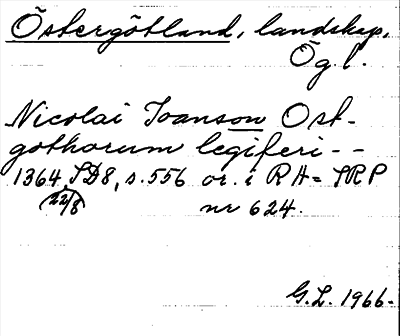 Östergötland, landskap,
Ögl.
Nicolai Ioanson Ost-
gothorum legiferi - -
1364, SD8, s. 556 or. i RA = SRP
22/8 nr 624.
G.L. 1966.